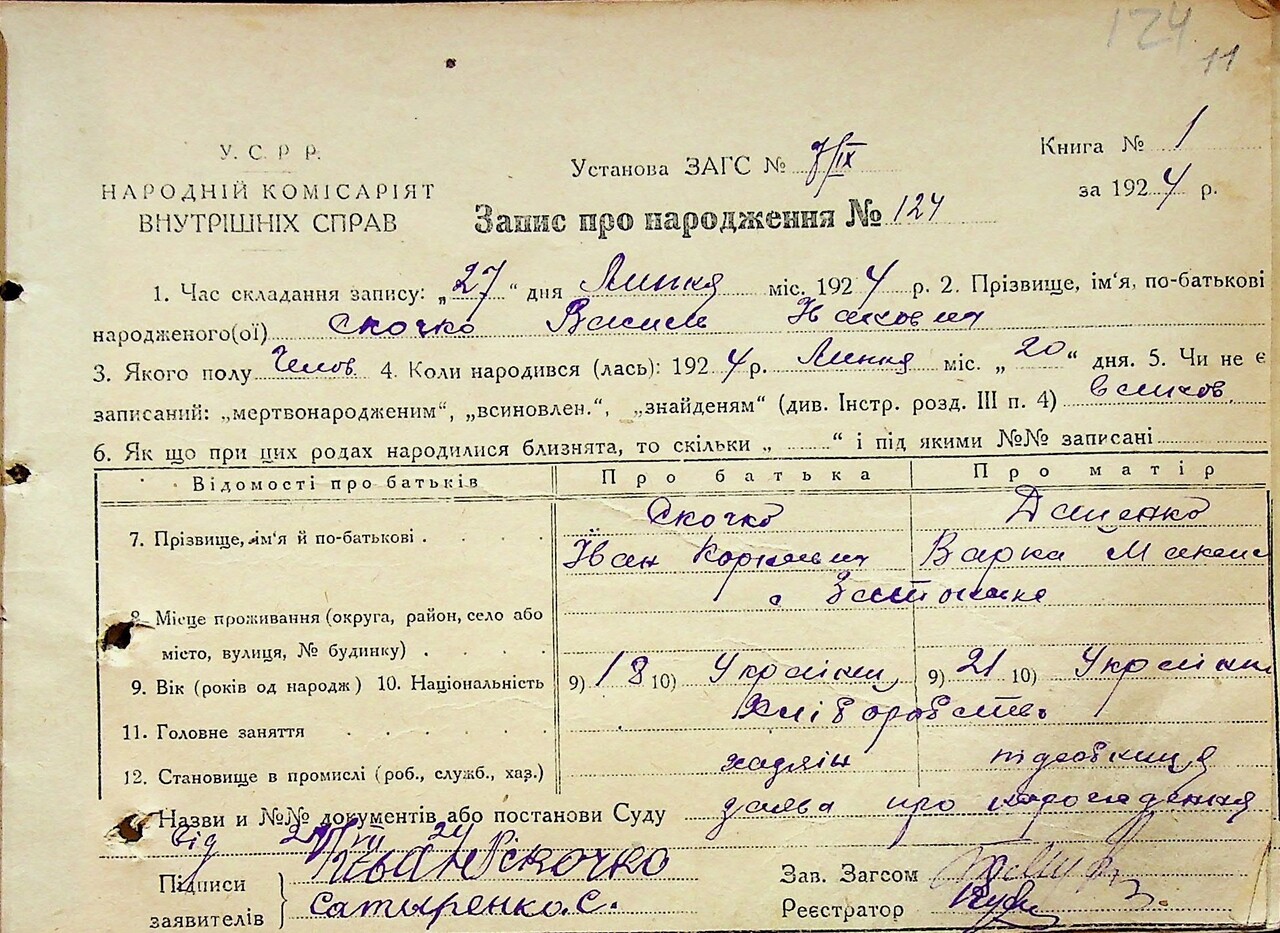 124
11
У. С. Р. Р.
НАРОДНІЙ КОМІСАРІЯТ
ВНУТРІШНІХ СПРАВ
Установа ЗАГС №
Книга № 1
за 1924 р.
Запис про народження № 124
1. Час складання запису: „27“ дня Липня міс. 1924 р. 2. Прізвище, ім'я, по-батькові
народженого(ої) Скочко Василь Іванович
3. Якого полу Чолов 4. Коли народився (лась): 1924 р. Липня міс. „20“ дня. 5. Чи не є
записаний: „мертвонародженим“, „всиновлен.“, „знайденям“ (див. Інстр. розд. III п. 4)
6. Як що при цих родах народилися близнята, то скільки „ “ і під якими №№ записані
Відомості про батьків Про батька Про матір
Скочко Даценко
7. Прізвище, ім'я й по-батькові
Іван Варка
с
8. Місце проживання (округа, район, село або
місто, вулиця, № будинку)
9. Вік (років од народж) 10. Національність 9) 18 10) Україин 9) 21 10) Україин
Хліборобство
11. Головне заняття
12. Становище в промислі (роб., служб., хаз.) хазяін підсобниця
Назви и №№ документів або постанови Суду заява про народження
від
Підписи заявителів Іван Скочко
Сатыренко. С.
Зав. Загсом
Реєстратор